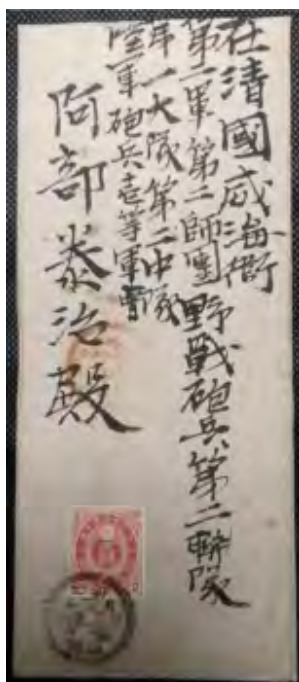 在清國威海衛
第二軍第二師團野戰砲兵第二聯隊
第一大隊第二中隊
陸軍砲兵壱等軍曹
阿部泰治殿